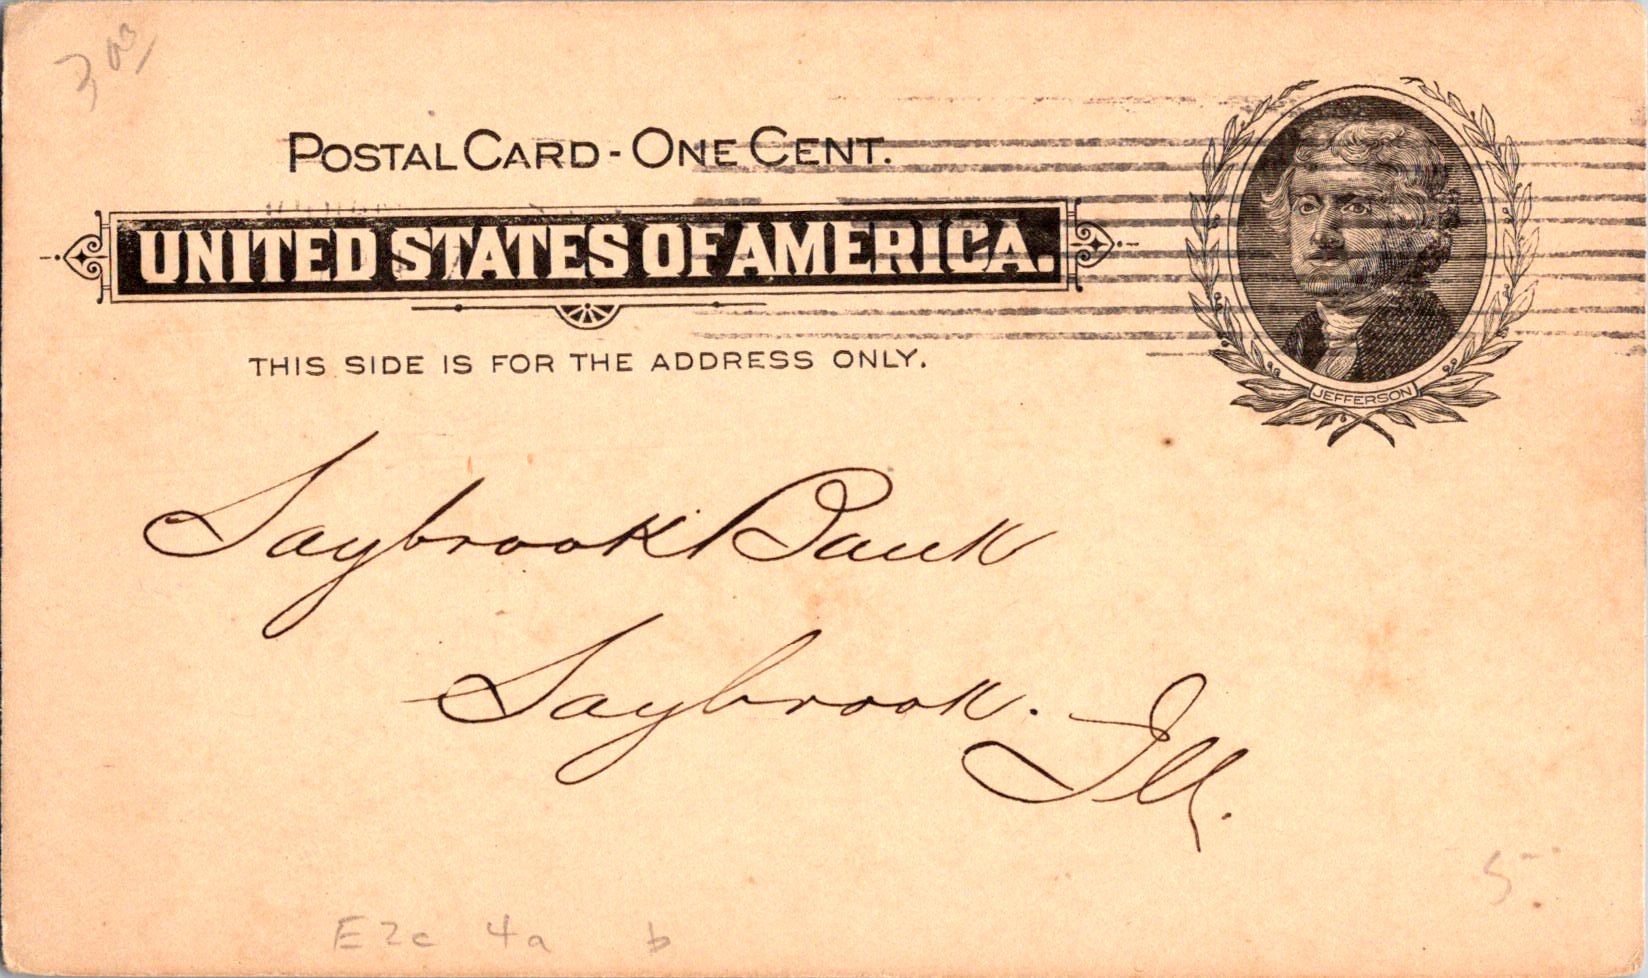 3 00
POSTAL CARD - ONE CENT.
UNITED STATES OF AMERICA.
THIS SIDE IS FOR THE ADDRESS ONLY.
JEFFERSON
Saybrook Bank
Saybrook. Ill.
5
E2c 4a b